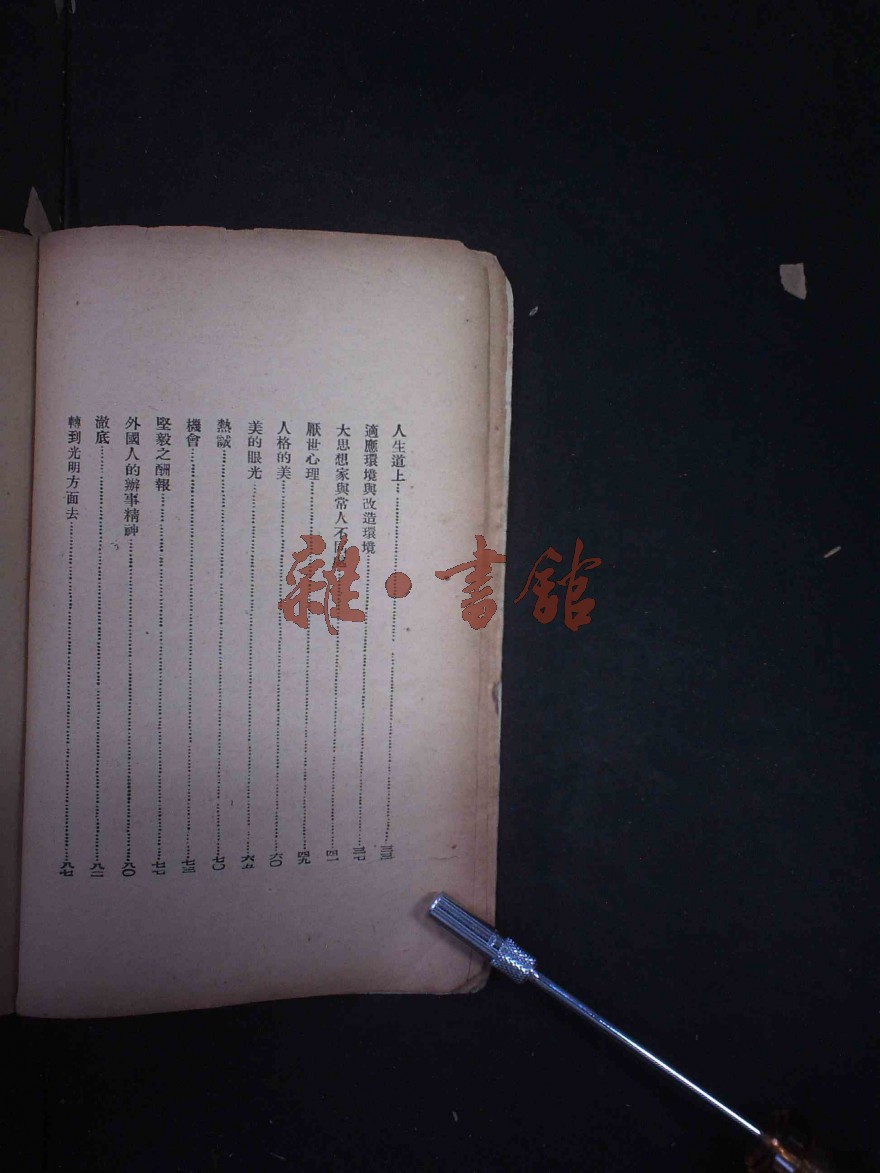 人生道上……三三
適應環境與改造環境……三七
大思想家與常人不同處……四一
厭世心理……四九
人格的美……六〇
美的眼光……六五
熱誠……七〇
機會……七三
堅毅之酬報……七七
外國人的辦事精神……八〇
澈底……八二
轉到光明方面去……八七
雜·書館